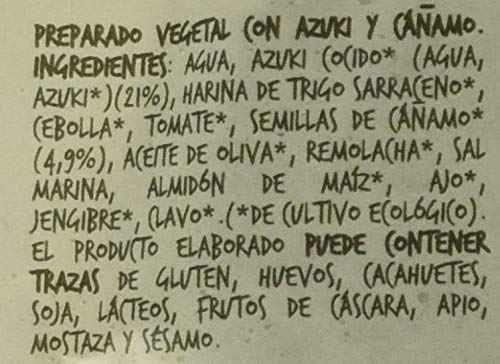 PREPARADO VEGETAL CON AZUKI Y CÁÑAMO.
INGREDIENTES: AGUA, AZUKI COCIDO* (AGUA,
AZUKI*)(21%), HARINA DE TRIGO SARRACENO*,
CEBOLLA*, TOMATE*, SEMILLAS DE CÁÑAMO*
(4,9%), ACEITE DE OLIVA*, REMOLACHA*, SAL
MARINA, ALMIDÓN DE MAÍZ*, AJO*,
JENGIBRE*, CLAVO*.(*DE CULTIVO ECOLÓGICO).
EL PRODUCTO ELABORADO PUEDE CONTENER
TRAZAS DE GLUTEN, HUEVOS, CACAHUETES,
SOJA, LÁCTEOS, FRUTOS DE CÁSCARA, APIO,
MOSTAZA Y SÉSAMO.